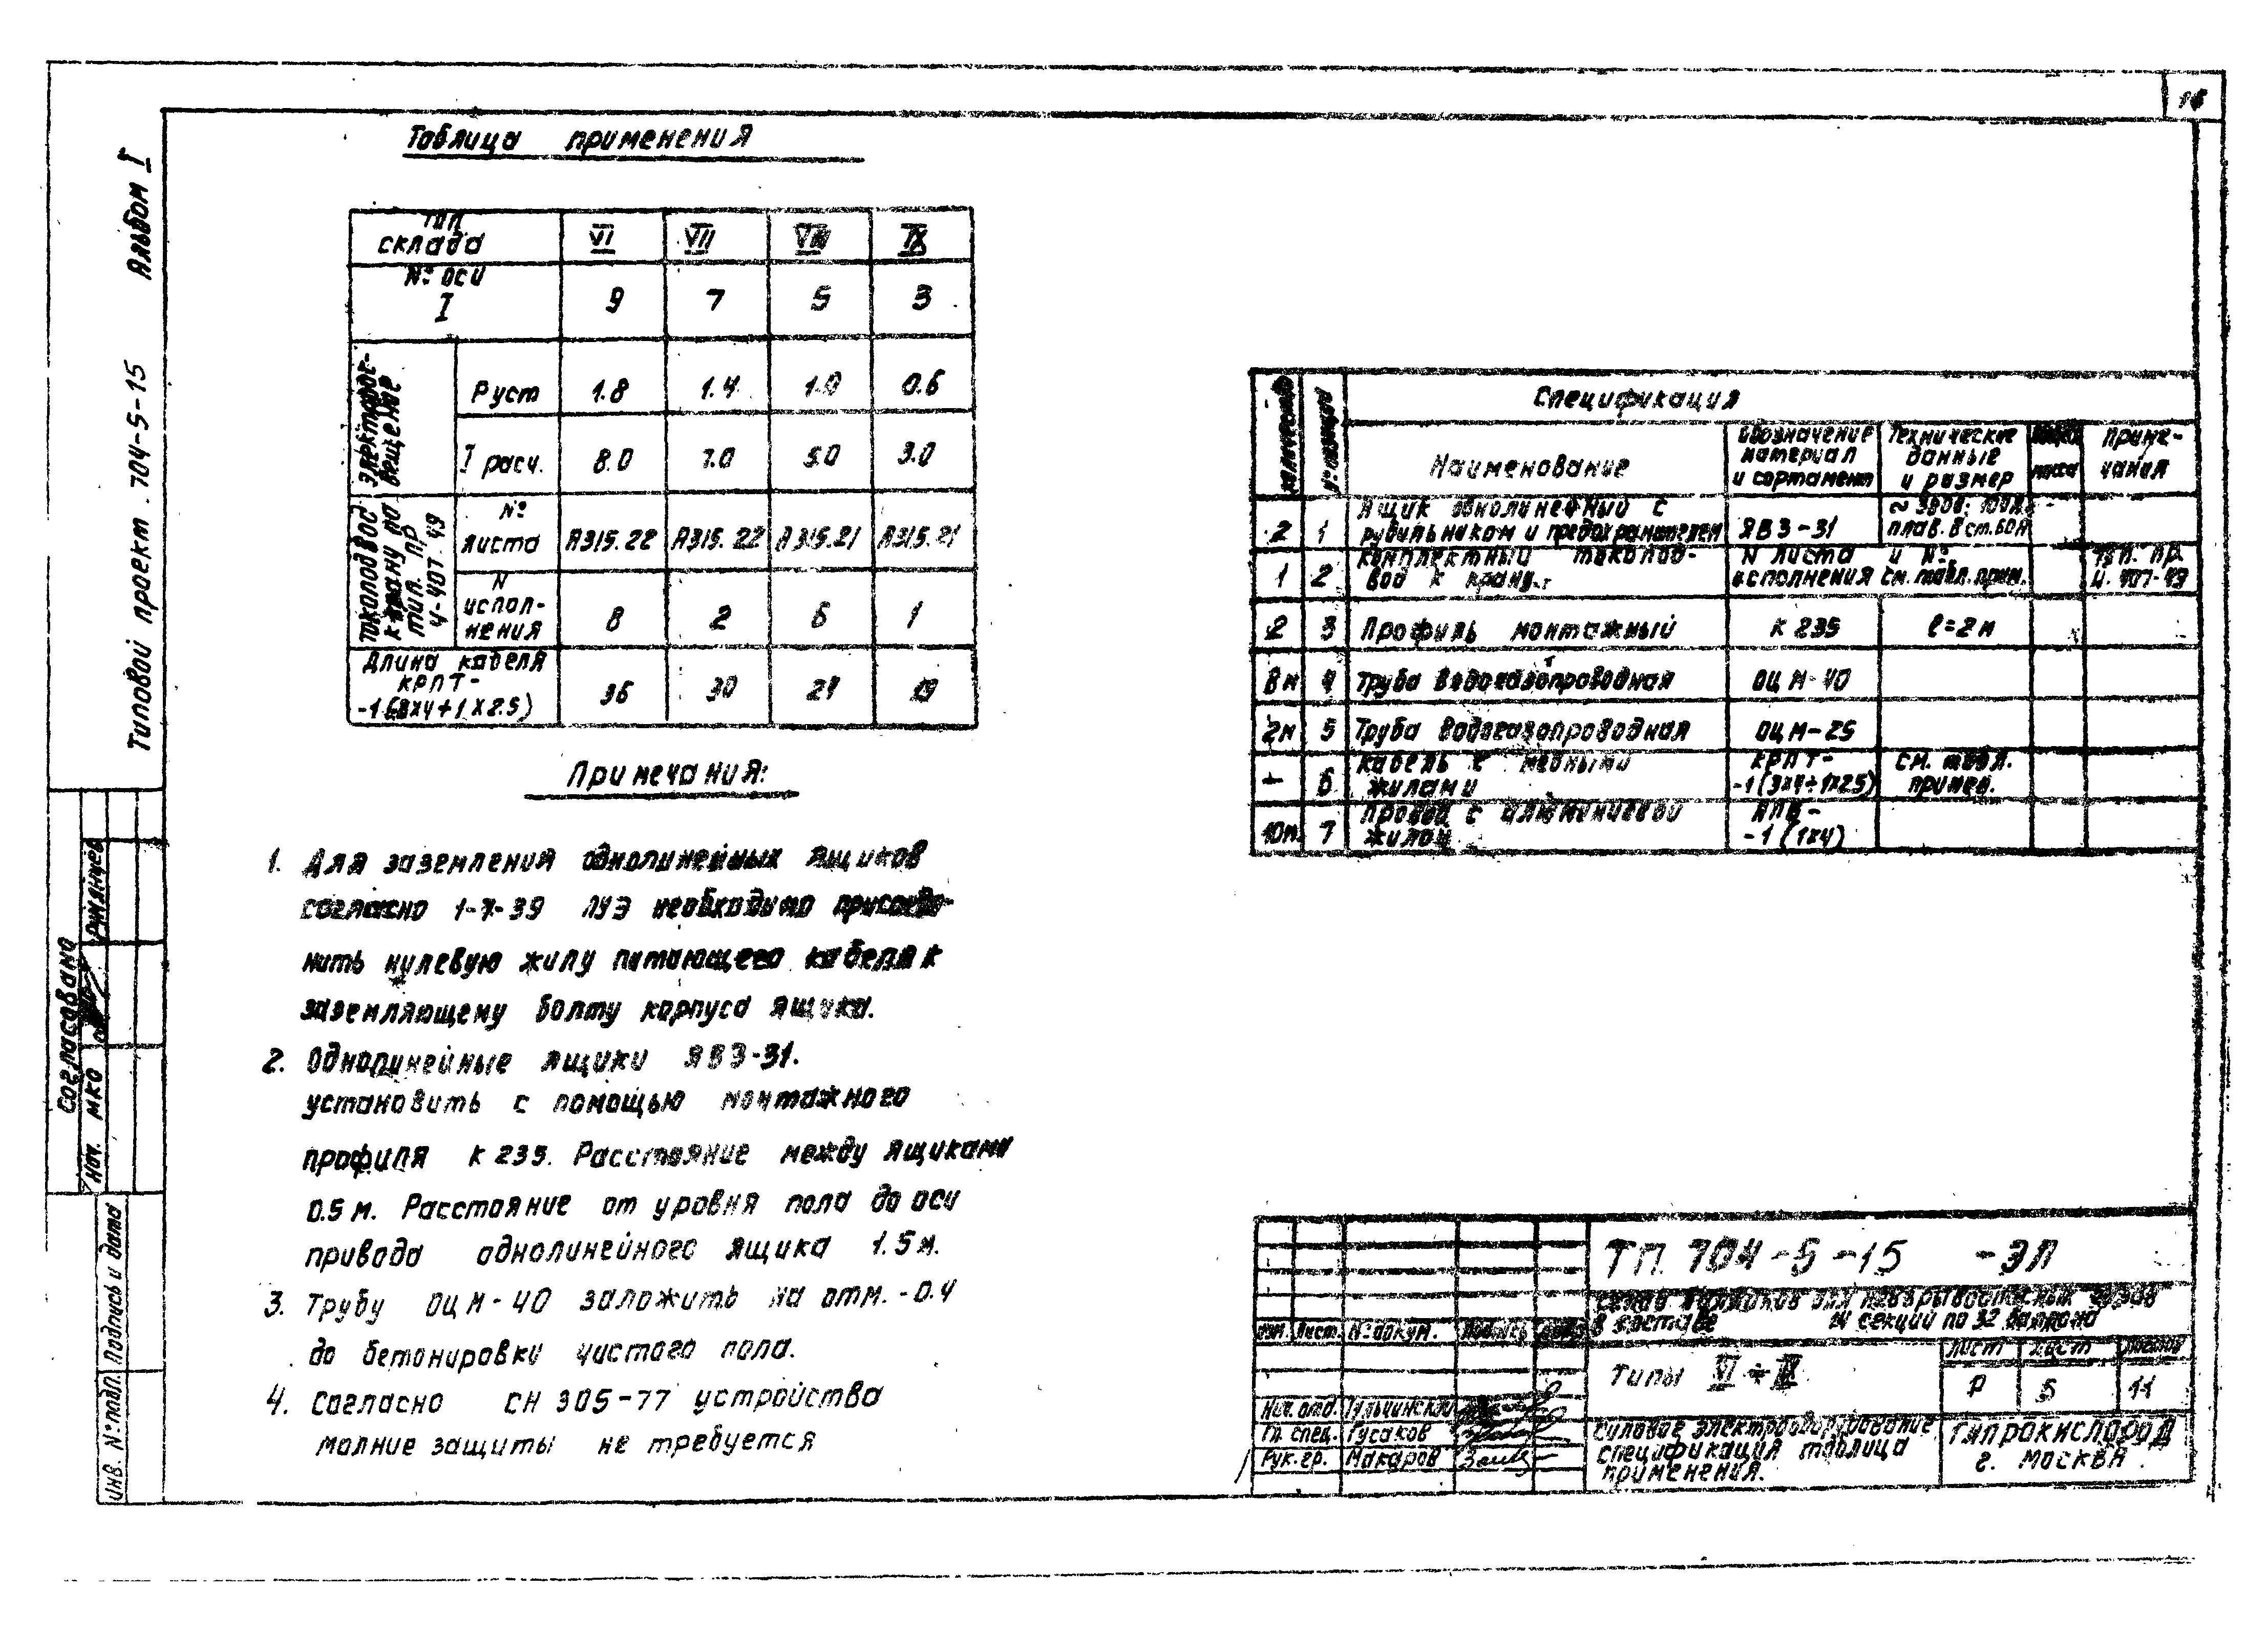 Альбом I
Типовой проект 704-5-15
Таблица применения
Тип склада VI VII VIII IX
№ оси I 9 7 5 3
Электроос-
вещение
Руст 1.8 1.4 1.0 0.6
I расч. 8.0 7.0 5.0 3.0
Токоподвод
к крану по
тип. пр
4-407-49
№ листа А315.22 А315.22 А315.21 А315.21
N испол-
нения 8 2 6 1
Длина кабеля
КРПТ-
-1(3х4+1х2.5) 36 30 19
Примечания:
1. Для заземления однолинейных ящиков
согласно 1-7-39 ПУЭ необходимо присоеди-
нить нулевую жилу питающего кабеля к
заземляющему болту корпуса ящика.
2. Однолинейные ящики ЯВЗ-31.
установить с помощью монтажного
профиля К 235. Расстояние между ящиками
0.5 м. Расстояние от уровня пола до оси
привода однолинейного ящика 1.5 м.
3. Трубу ОЦ М-40 заложить на отм. -0.4
до бетонировки чистого пола.
4. Согласно СН 305-77 устройства
молние защиты не требуется
Количество № позиции Спецификация
Наименование
Обозначение
материал
и сортамент
Технические
данные
и размер
масса
Приме-
чания
2 1 Ящик однолинейный с
рубильником и предохранителем ЯВЗ-31
~ 380в; 100А
плав. вст. 60А
1 2 Комплектный токопод-
вод к крану.
N листа и №
исполнения см. табл. прим.
тип. пр.
4-407-49
2 3 Профиль монтажный К 235 ℓ=2м
8м 4 Труба водогазопроводная ОЦ М-40
2м 5 Труба водогазопроводная ОЦ М-25
- 6 Кабель с медными
жилами
КРПТ-
-1(3х4+1х2.5)
см. табл.
примен.
10м 7 Провод с алюминиевой
жилой
АПВ-
-1(1х4)
ТП 704-5-15 -ЭЛ
Склад баллонов для невзрывоопасных газов
в составе 14 секций по 32 баллона
Изм. Лист № докум. Подпись Дата
Типы VI ÷ IX
Лист Лист Листов
Р 5 11
Нач. отд. Гульчинский
Гл. спец. Гусаков
Рук. гр. Макаров
Силовое электрооборудование
спецификация таблица
применения.
Гипрокислород
г. Москва
Согласовано
Нач. МКО Румянцев
Инв. № подл. Подпись и дата